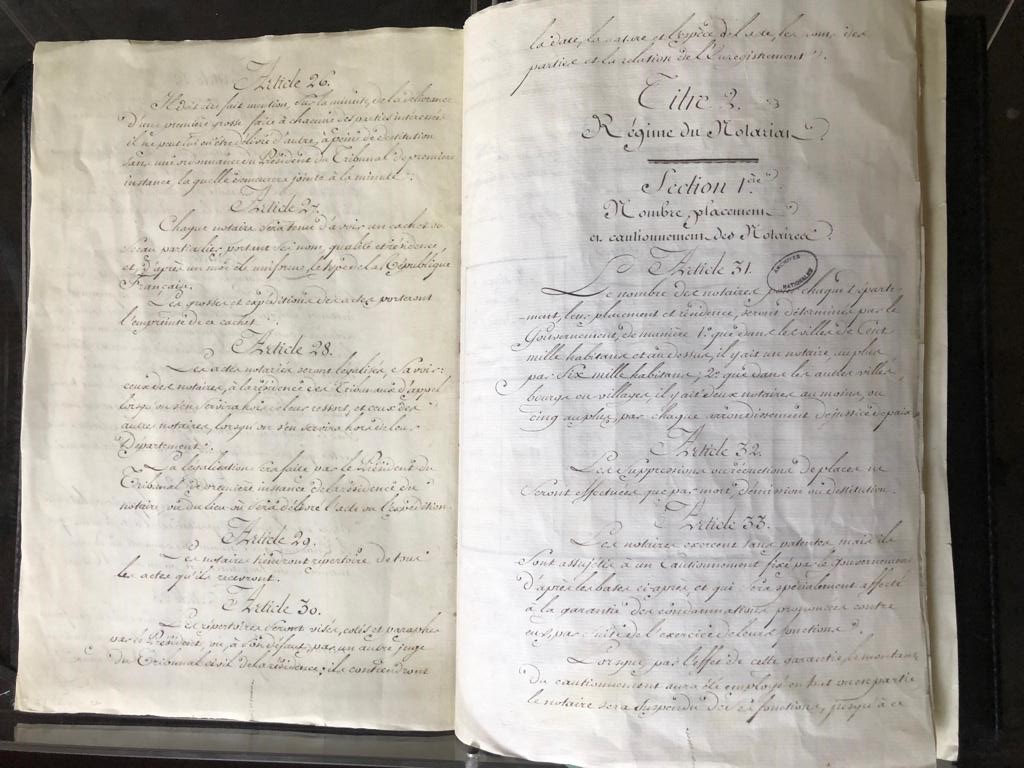 Article 26.
Il doit être fait mention, sur la minute, de la délivrance
d'une première grosse faite à chacune des parties intéressées
il ne peut lui en être délivré d'autre, à peine de destitution
sans une ordonnance du Président du Tribunal de première
instance, laquelle demeurera jointe à la minute.
Article 27.
Chaque notaire sera tenu d'avoir un cachet ou
sceau particulier, portant ses nom, qualité et résidence
et, d'après un modèle uniforme, le type de la République
Française.
Les grosses et expéditions des actes porteront
l'empreinte de ce cachet.
Article 28.
Les actes notariés seront légalisés, Savoir:
ceux des notaires à la résidence des Tribunaux d'appel
lorsqu'on s'en servira hors de leur ressort, et ceux des
autres notaires, lorsqu'on s'en servira hors de leur
Département.
La légalisation sera faite par le Président du
Tribunal de première instance de la résidence du
notaire, ou du lieu où sera délivré l'acte ou l'expédition.
Article 29.
Les notaires tiendront répertoire de tous
les actes qu'ils recevront.
Article 30.
Les répertoires seront visés, cotés et paraphés
par le Président, ou, à son défaut, par un autre juge
du Tribunal civil de la résidence: ils contiendront
la date, la nature et l'espèce de l'acte, les noms des
parties et la relation de l'Enregistrement.
Titre 2.
Régime du Notariat.
Section 1.ère
Nombre, placement
et cautionnement des Notaires.
Article 31.
ARCHIVES NATIONALES
Le nombre des notaires pour chaque Départe-
-ment, leur placement et résidence, seront déterminés par le
Gouvernement, de manière 1.º que dans les villes de Cent
mille habitans et au dessus, il y ait un notaire, au plus
par Six mille habitans; 2.º que dans les autres villes
bourgs ou villages, il y ait deux notaires au moins, ou
cinq au plus, par chaque arrondissement de justice de paix.
Article 32.
Les Suppressions ou réductions de places ne
Seront effectuées que par mort, démission ou destitution.
Article 33.
Les notaires exercent sans patentes, mais ils
Sont assujetis à un Cautionnement fixé par le Gouvernement
d'après les bases ci-après, et qui sera spécialement affecté
à la garantie des condamnations prononcées contre
eux, par suite de l'exercice de leurs fonctions.
Lorsque, par l'effet de cette garantie, le montant
du cautionnement aura été employé en tout ou en partie
le notaire sera Suspendu de ses fonctions, jusqu'à ce